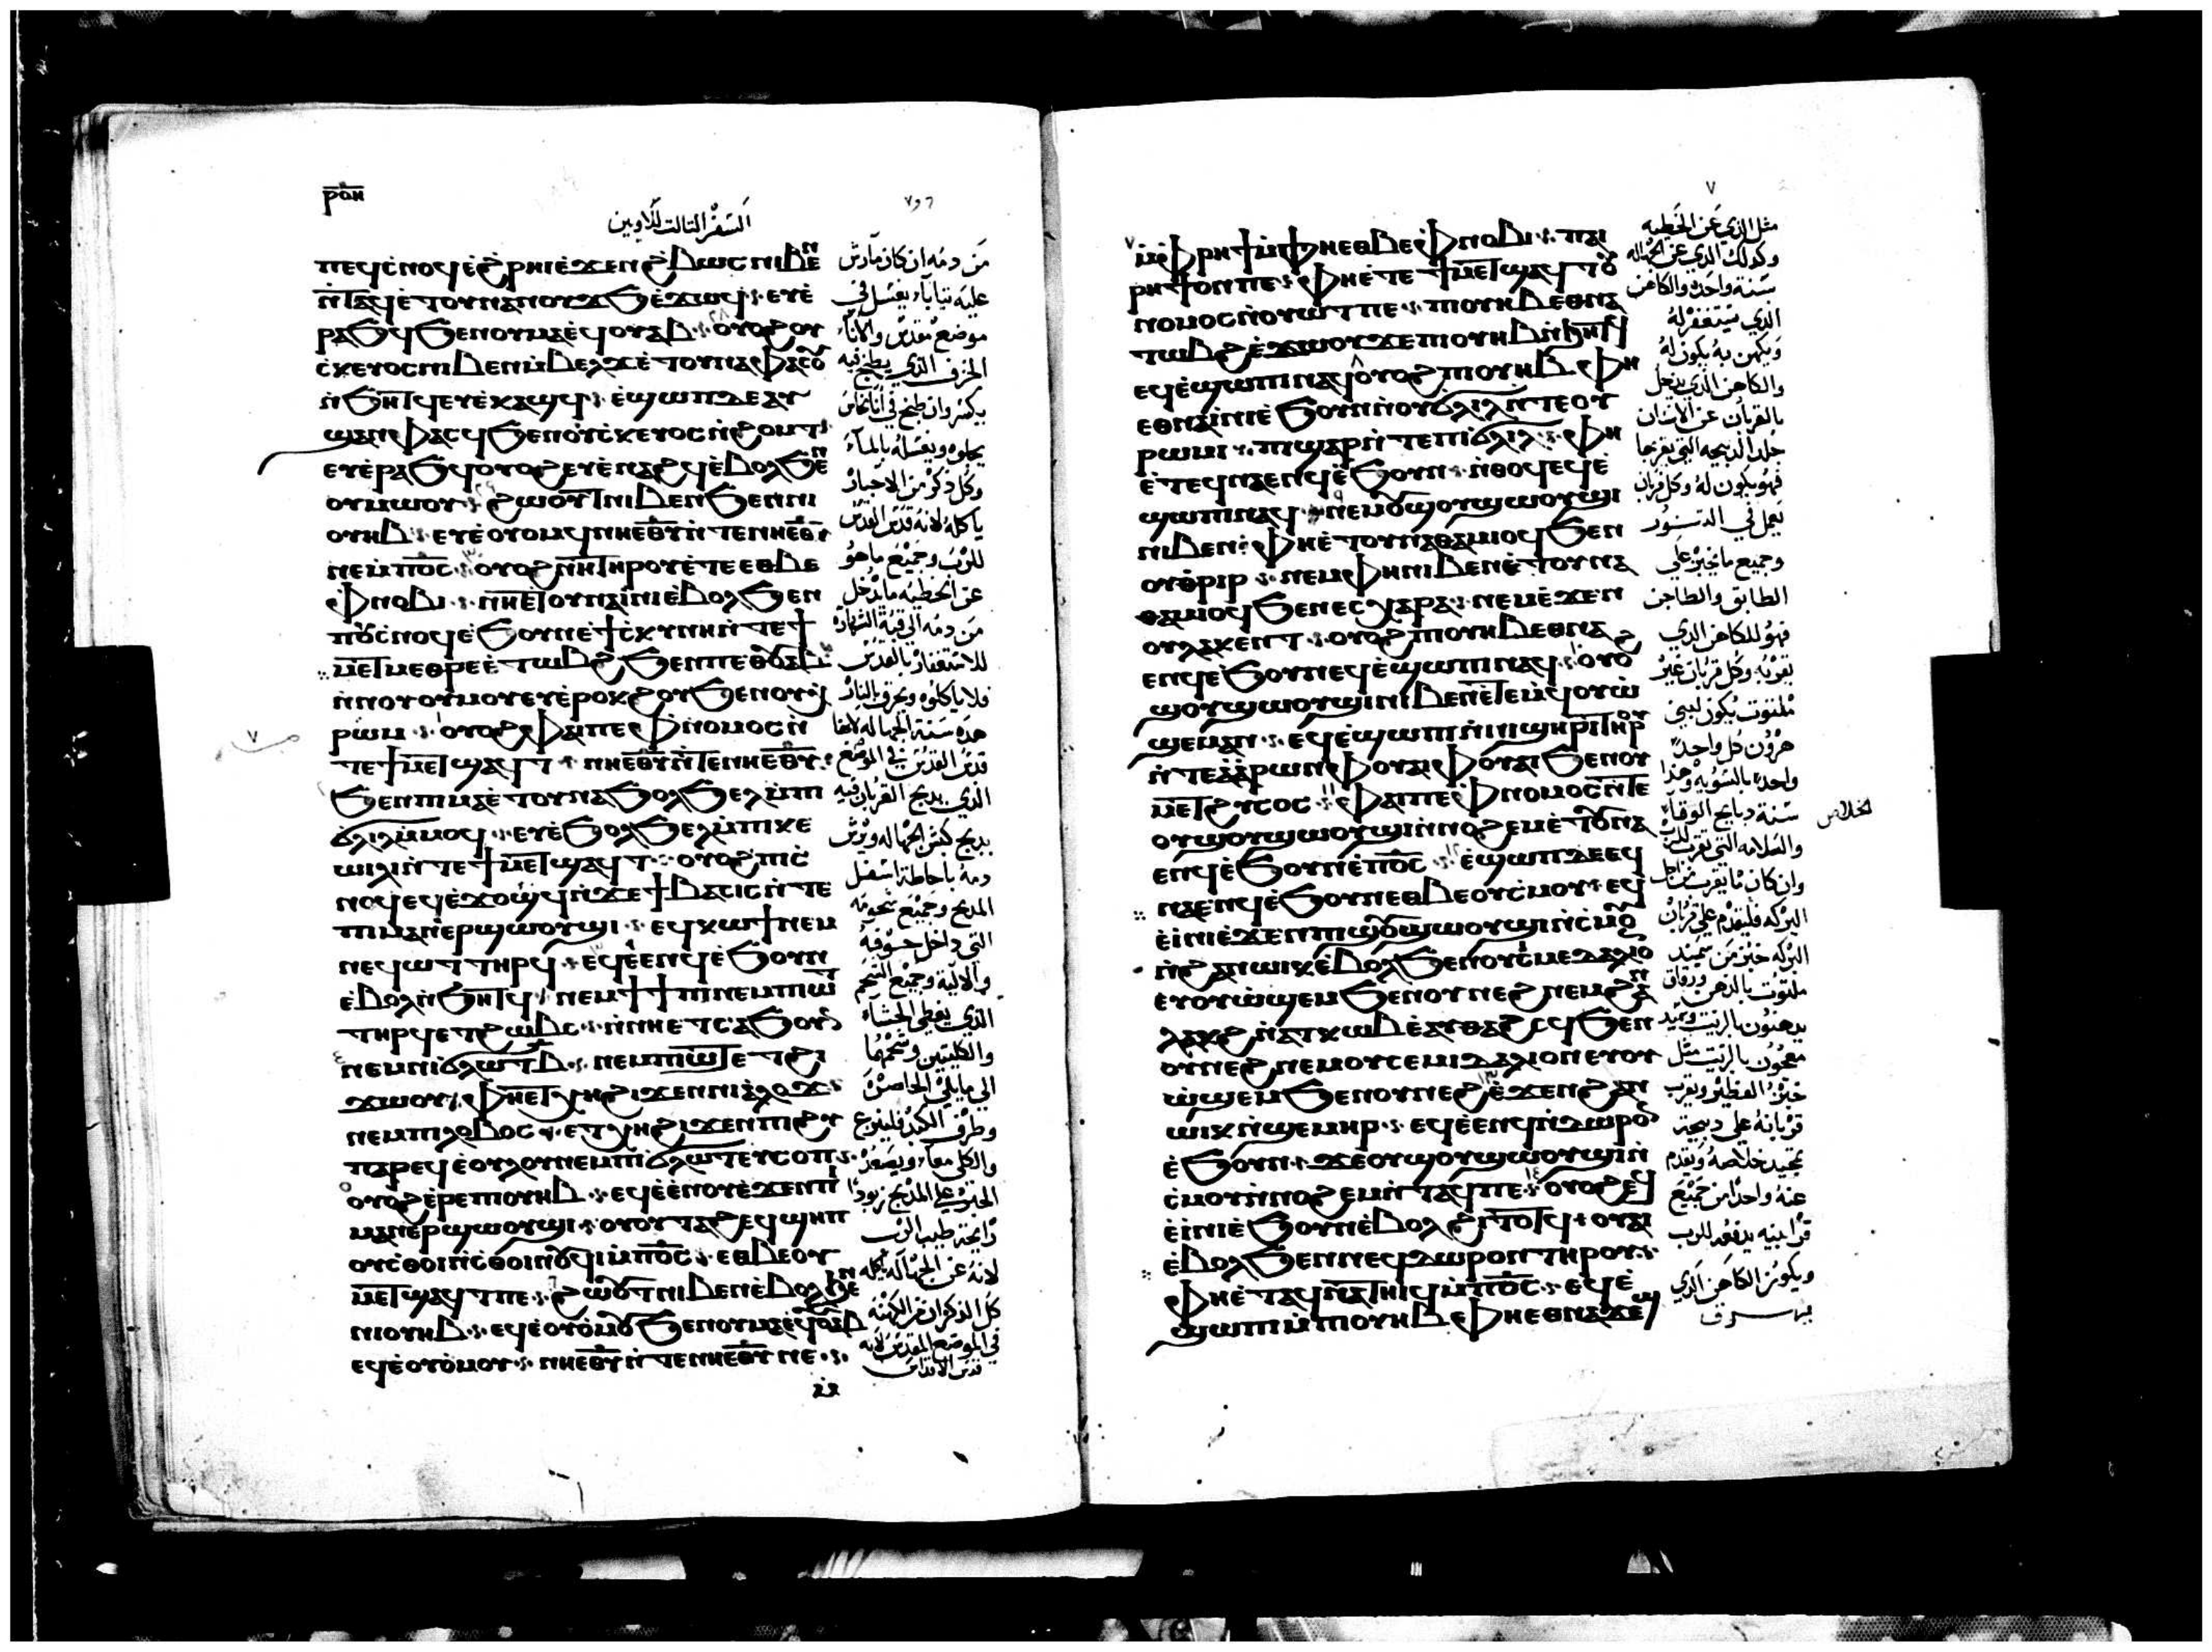 ⲣⲟⲏ
السفر التالت للاويين
ⲡⲉϥⲥⲛⲟϥ ⲉϩⲣⲏⲓ ⲉϫⲉⲛ ϩⲃⲱⲥ ⲛⲓⲃⲉⲛ
ⲛⲧⲁϥ ⲉⲧⲟⲩⲛⲁⲛⲟⲩϫϧ ⲉϫⲱϥ ⲉⲩⲉ
ⲣⲁϧϥ ϧⲉⲛ ⲟⲩⲙⲁ ⲉϥⲟⲩⲁⲃ ⲟⲩⲟϩ ⲟⲩ
ⲥⲕⲉⲩⲟⲥ ⲛⲓⲃⲉⲛ ⲙⲃⲉⲗϫ ⲉⲧⲟⲩⲛⲁⲫⲁⲥϥ
ⲛϧⲏⲧϥ ⲉⲩⲉⲕⲁϣϥ ⲉϣⲱⲡ ⲇⲉ ⲁⲩ
ϣⲁⲛⲫⲁⲥϥ ϧⲉⲛ ⲟⲩⲥⲕⲉⲩⲟⲥ ⲛϩⲟⲙⲧ
ⲉⲩⲉⲣⲁϧϥ ⲟⲩⲟϩ ⲉⲩⲉⲛⲁϩϥ ⲉⲃⲟⲗ ϧⲉⲛ
ⲟⲩⲙⲱⲟⲩ ϩⲱⲟⲩⲧ ⲛⲓⲃⲉⲛ ϧⲉⲛ ⲛⲓ
ⲟⲩⲏⲃ ⲉⲩⲉⲟⲩⲟⲙϥ ⲛⲏⲉⲑⲩ ⲛⲧⲉ ⲛⲏⲉⲑⲩ
ⲛⲉ ⲙⲡⲟⲥ ⲟⲩⲟϩ ⲛⲏ ⲧⲏⲣⲟⲩ ⲉⲧⲉ ⲉⲑⲃⲉ
ⲫⲛⲟⲃⲓ ⲛⲏ ⲉⲧⲟⲩⲛⲁⲓⲛⲓ ⲉⲃⲟⲗ ϧⲉⲛ
ⲡⲟⲩⲥⲛⲟϥ ⲉϧⲟⲩⲛ ⲉϯⲥⲕⲩⲛⲏ ⲛⲧⲉ ϯ
ⲙⲉⲧⲙⲉⲑⲣⲉ ⲉⲧⲱⲃϩ ϧⲉⲛ ⲡⲉⲑⲟⲩⲁⲃ
ⲛⲛⲟⲩⲟⲩⲙⲟⲩ ⲉⲩⲉⲣⲟⲕϩⲟⲩ ϧⲉⲛ ⲟⲩⲭ
ⲣⲱⲙ ⲟⲩⲟϩ ⲫⲁⲓ ⲡⲉ ⲫⲛⲟⲙⲟⲥ ⲛ
ⲧⲉ ϯⲙⲉⲧϣⲁϥⲧ ⲛⲏⲉⲑⲩ ⲛⲧⲉ ⲛⲏⲉⲑⲩ
ϧⲉⲛ ⲡⲓⲙⲁ ⲉⲧⲟⲩⲛⲁϧⲟⲗϧⲉⲗ ⲙⲡⲓ
ϭⲗⲓⲗ ⲙⲙⲟϥ ⲉⲩⲉϧⲟⲗϧⲉⲗ ⲙⲡⲓⲕⲉ
ⲱⲓⲗⲓ ⲛⲧⲉ ϯⲙⲉⲧϣⲁϥⲧ ⲟⲩⲟϩ ⲡⲓⲥ
ⲛⲟϥ ⲉϥⲉϫⲟϣϥ ⲛϫⲉ ϯⲃⲁⲥⲓⲥ ⲛⲧⲉ
ⲡⲓⲙⲁⲛⲉⲣϣⲱⲟⲩϣⲓ ⲉϥⲕⲱϯ ⲛⲉⲙ
ⲛⲉϥⲱⲧ ⲧⲏⲣϥ ⲉϥⲉⲉⲛϥ ⲉϧⲟⲩⲛ
ⲉⲃⲟⲗ ⲛϧⲏⲧϥ ⲛⲉⲙ ϯϯⲡⲓ ⲛⲉⲙ ⲡⲓⲱⲧ
ⲧⲏⲣϥ ⲉⲧϩⲱⲃⲥ ⲛⲛⲏ ⲉⲧⲥⲁϧⲟⲩⲛ
ⲛⲉⲙ ⲛⲓϭⲗⲱⲧ ⲃ ⲛⲉⲙ ⲡⲓⲱⲧ ⲉⲧϩⲓ
ϫⲱⲟⲩ ⲫⲏ ⲉⲧⲭⲏ ϩⲓϫⲉⲛ ⲛⲓⲁⲗⲟϫ
ⲛⲉⲙ ⲡⲓⲗⲟⲃⲟⲥ ⲉⲧⲭⲏ ϩⲓϫⲉⲛ ⲡⲓϩⲏ
ⲡⲁⲣ ⲉϥⲉⲟⲗⲟⲩ ⲛⲉⲙ ⲛⲓϭⲗⲱⲧ ⲉⲩⲥⲟⲡ
ⲟⲩⲟϩ ⲉⲣⲉ ⲡⲓⲟⲩⲏⲃ ⲉϥⲉⲉⲛⲟⲩ ⲉϫⲉⲛ ⲡⲓ
ⲙⲁⲛⲉⲣϣⲱⲟⲩϣⲓ ⲟⲩⲟⲩⲧⲁϩ ⲉϥϣⲏⲡ
ⲟⲩⲥⲑⲟⲓ ⲛⲥⲑⲟⲓⲛⲟⲩϥⲓ ⲙⲡⲟⲥ ⲉⲑⲃⲉ ⲟⲩ
ⲙⲉⲧϣⲁϥⲧ ⲡⲉ ϩⲱⲟⲩⲧ ⲛⲓⲃⲉⲛ ⲉⲃⲟⲗ ϧⲉⲛ
ⲛⲓⲟⲩⲏⲃ ⲉϥⲉⲟⲩⲟⲙⲟⲩ ϧⲉⲛ ⲟⲩⲙⲁ ⲉϥⲟⲩⲁⲃ
ⲉϥⲉⲟⲩⲟⲙⲟⲩ ⲛⲏⲉⲑⲩ ⲛⲧⲉ ⲛⲏⲉⲑⲩ ⲛⲉ
٦ و٧
من دمه ان كان مارش
عليه تياباً يغسل في
موضع مقدس والانآء
الخزف الذي يطبخ فيه
يكسر وان طبخ في انآ نحاس
يجلوه ويغسله بالمآء
وكل ذكر من الاحبار
ياكله لانه قدس القدس
للرب وجميع ما هو
عن الخطيه مايدخل
من دمه الي قبة الشهاده
للاستغفار بالقدس
فلا ياكلوه ويحرق بالنار
هذه سنة الجهاله لانها
قدس القدس في الموضع
الذي يدبح القربان فيه
يدبح كبش الجهاله ويرش
دمه باحاطة اسفل
المدبح وجميع شحومه
التي داخل جوفه
والالية وجميع الشحم
الذي يغطي الحشاء
والكليتين وشحمهما
الي مايلي الخاصرة
وطرف الكبد فلينزع
والكلي معاً ويصعد
الحبر علي المدبح زبودا
رايحة طيب الرب
لانه عن الجهاله ياكله
كل الذكران من الكهنه
في الموضع المقدس لانه
قدس الاقداس
٧
ⲙⲫⲣⲏϯ ⲙⲫⲏ ⲉⲑⲃⲉ ⲫⲛⲟⲃⲓ ⲡⲁⲓ
ⲣⲏϯ ⲟⲛ ⲡⲉ ⲫⲏ ⲉⲧⲉ ϯⲙⲉⲧϣⲁϥⲧ ⲟⲩ
ⲛⲟⲙⲟⲥ ⲛⲟⲩⲱⲧ ⲡⲉ ⲡⲓⲟⲩⲏⲃ ⲉⲑⲛⲁ
ⲧⲱⲃϩ ⲉϫⲱⲟⲩ ϫⲉ ⲡⲓⲟⲩⲏⲃ ⲛϧⲏⲧϥ
ⲉϥⲉϣⲱⲡⲓ ⲛⲁϥ ⲟⲩⲟϩ ⲡⲓⲟⲩⲏⲃ ⲫⲏ
ⲉⲑⲛⲁⲓⲛⲓ ⲉϧⲟⲩⲛ ⲛⲟⲩϭⲗⲓⲗ ⲛⲧⲉ ⲟⲩ
ⲣⲱⲙⲓ ⲡⲓϣⲁⲣ ⲛⲧⲉ ⲡⲓϭⲗⲓⲗ ⲫⲏ
ⲉⲧⲉϥⲛⲁⲉⲛϥ ⲉϧⲟⲩⲛ ⲛⲑⲟϥ ⲉϥⲉ
ϣⲱⲡⲓ ⲛⲁϥ ⲛⲉⲙ ϭⲟⲩϣⲟⲩϣⲱⲟⲩϣⲓ
ⲛⲓⲃⲉⲛ ⲫⲏ ⲉⲧⲟⲩⲛⲁⲑⲁⲙⲓⲟϥ ϧⲉⲛ
ⲟⲩⲑⲣⲓⲣ ⲛⲉⲙ ⲫⲏ ⲛⲓⲃⲉⲛ ⲉⲧⲟⲩⲛⲁ
ⲑⲁⲙⲓⲟϥ ϧⲉⲛ ⲉⲥⲭⲁⲣⲁ ⲛⲉⲙ ⲉϫⲉⲛ
ⲟⲩⲗⲁⲕⲉⲛⲧ ⲟⲩⲟϩ ⲡⲓⲟⲩⲏⲃ ⲉⲑⲛⲁ
ⲉⲛϥ ⲉϧⲟⲩⲛ ⲉϥⲉϣⲱⲡⲓ ⲛⲁϥ ⲟⲩⲟϩ
ϣⲟⲩϣⲱⲟⲩϣⲓ ⲛⲓⲃⲉⲛ ⲉⲧⲉ ⲙⲡⲟⲩⲟⲩⲱ
ϣⲉⲙ ⲁⲛ ⲉϥⲉϣⲱⲡⲓ ⲛⲛⲓϣⲏⲣⲓ ⲧⲏⲣⲟⲩ
ⲛⲧⲉ ⲁⲁⲣⲱⲛ ⲫⲟⲩⲁⲓ ⲫⲟⲩⲁⲓ ϧⲉⲛ ⲟⲩ
ⲙⲉⲧϩⲩⲥⲟⲥ ⲫⲁⲓ ⲡⲉ ⲫⲛⲟⲙⲟⲥ ⲛⲧⲉ
ⲟⲩϣⲟⲩϣⲱⲟⲩϣⲓ ⲛⲛⲟϩⲉⲙ ⲉⲧⲟⲩⲛⲁ
ⲉⲛϥ ⲉϧⲟⲩⲛ ⲉⲡⲟⲥ ⲉϣⲱⲡ ⲇⲉ ⲉϥ
ⲛⲁⲉⲛϥ ⲉϧⲟⲩⲛ ⲉⲑⲃⲉ ⲟⲩⲥⲙⲟⲩ ⲉϥⲉ
ⲉⲓⲛⲓ ⲉϫⲉⲛ ⲡⲓϣⲟⲩϣⲱⲟⲩϣⲓ ⲛⲥⲙⲟⲩ
ⲛϩⲁⲛⲱⲓⲕ ⲉⲃⲟⲗ ϧⲉⲛ ⲟⲩⲥⲉⲙⲉⲇⲁⲗⲓⲟⲛ
ⲉⲩⲟⲩⲱϣⲉⲙ ϧⲉⲛ ⲟⲩⲛⲉϩ ⲛⲉⲙ ϩⲁⲛ
ⲗⲁⲕϩ ⲛⲁⲧⲕⲱⲃ ⲉⲁⲩⲑⲁϩⲥϥ ϧⲉⲛ
ⲟⲩⲛⲉϩ ⲛⲉⲙ ⲟⲩⲥⲉⲙⲓⲇⲁⲗⲓⲟⲛ ⲉⲩⲟⲩ
ⲱϣⲉⲙ ϧⲉⲛ ⲟⲩⲛⲉϩ ⲉϫⲉⲛ ϩⲁⲛ
ⲱⲓⲕ ⲛϣⲉⲙⲏⲣ ⲉϥⲉⲉⲛϥ ⲛⲇⲱⲣⲟⲛ
ⲉϧⲟⲩⲛ ϫⲉ ⲟⲩϣⲟⲩϣⲱⲟⲩϣⲓ ⲛ
ⲥⲙⲟⲩ ⲛⲛⲟϩⲉⲙ ⲛⲧⲁϥ ⲡⲉ ⲟⲩⲟϩ ⲉϥⲉ
ⲉⲓⲛⲓ ⲉϧⲟⲩⲛ ⲉⲃⲟⲗ ϩⲓⲧⲟⲧϥ ⲟⲩⲁⲓ
ⲉⲃⲟⲗ ϧⲉⲛ ⲛⲉϥⲇⲱⲣⲟⲛ ⲧⲏⲣⲟⲩ
ⲫⲏ ⲉⲧⲁϥⲛⲁⲧⲏⲓϥ ⲙⲡⲟⲥ ⲉϥⲉ
ϣⲱⲡⲓ ⲙⲡⲓⲟⲩⲏⲃ ⲫⲏ ⲉⲑⲛⲁϫⲉϣ
٧
مثل الذي عن الخطيه
وكذلك الذي عن الجهاله
سنة واحده والكاهن
الذي يستغفر له
ويكهن به يكون له
والكاهن الذي يدخل
بالقربان عن الانسان
جلد الدبيحه التي يقربها
فهو يكون له وكل قربان
يعمل في التنور
وجميع مايخبز علي
الطابق والطاجن
فهو للكاهن الذي
يقربه وكل قربان غير
ملتوت يكون لبني
هرون كل واحد
واحده بالسويه وهذا
سنة دبايح الوقاه
والسلامه التي تقرب للرب
وان كان مايقرب من اجل
البركه فليقدم علي قربان
البركه خبز من سميد
ملتوت بالدهن ورقاق
يدهنون بالزيت وسميد
معجون بالزيت مثل
خبز الفطير ويقرب
قربانه علي دبيحة
تمجيد خلاصه ويقدم
عنه واحدا من جميع
قرابينه يدفعه للرب
ويكون الكاهن الذي
يهرق
الخلاص